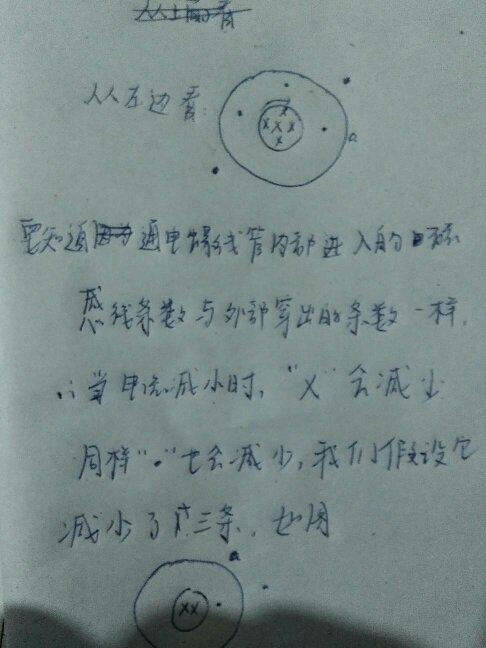 从左边看:
a
要知道通电螺线管内部进入的磁
感线条数与外部穿出的条数一样,
∴当电流减小时,"X"会减少
同样"·"也会减少,我们假设它
减少了三条,如图
a